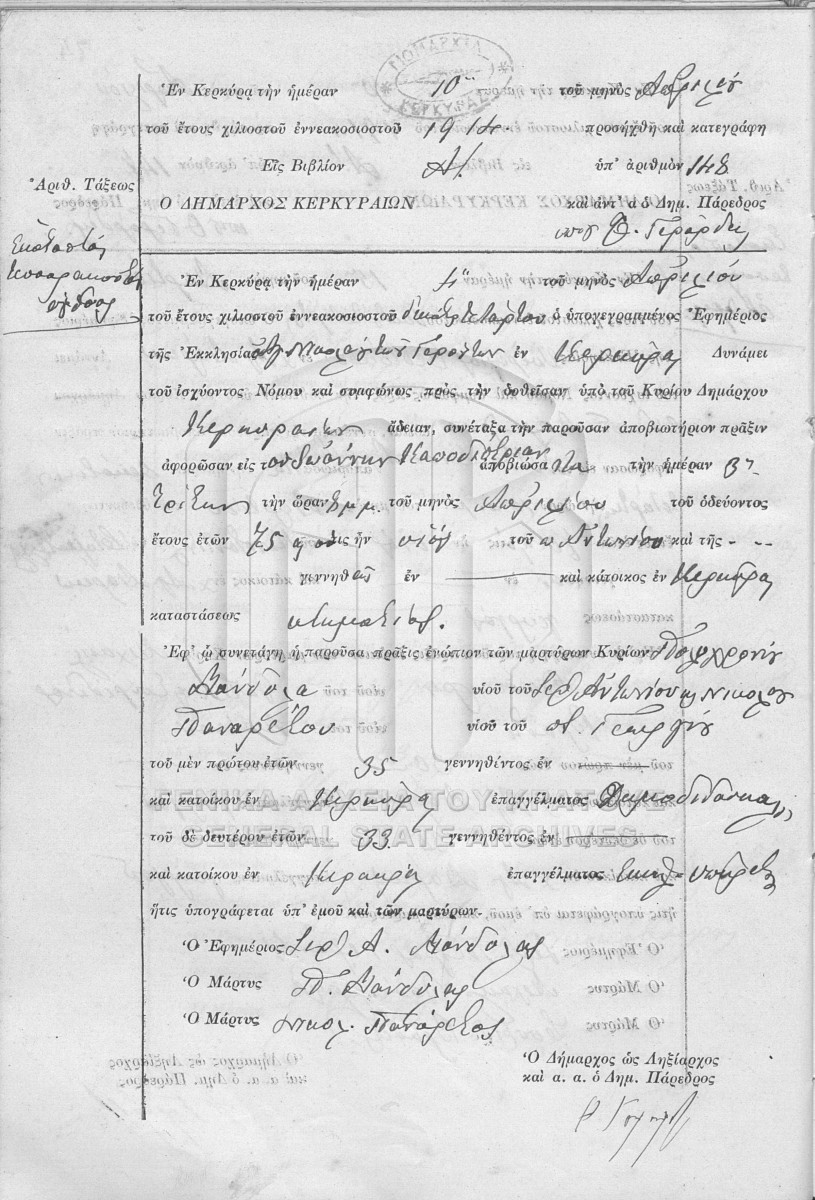 ΔΗΜΑΡΧΙΑ ΚΕΡΚΥΡΑΣ
Ἐν Κερκύρᾳ τὴν ἡμέραν 10 τοῦ μηνὸς Ἀπριλίου
τοῦ ἔτους χιλιοστοῦ ἐννεακοσιοστοῦ 1914 προσήχθη καὶ κατεγράφη
Εἰς Βιβλίον Α/. ὑπ' ἀριθμὸν 148
Ἀριθ. Τάξεως
Ο ΔΗΜΑΡΧΟΣ ΚΕΡΚΥΡΑΙΩΝ καὶ ἀντ' α ὁ Δημ. Πάρεδρος
Ἑκατοστὸν
τεσσαρακοστὸν
ὄγδοον
Ἐν Κερκύρᾳ τὴν ἡμέραν 4ην τοῦ μηνὸς Ἀπριλίου
τοῦ ἔτους χιλιοστοῦ ἐννεακοσιοστοῦ δεκάτου τετάρτου ὁ ὑπογεγραμμένος Ἐφημέριος
τῆς Ἐκκλησίας Ἁγ. Νικολάου τῶν Γερόντων ἐν Κερκύρᾳ Δυνάμει
τοῦ ἰσχύοντος Νόμου καὶ συμφώνως πρὸς τὴν δοθεῖσαν ὑπὸ τοῦ Κυρίου Δημάρχου
Κερκυραίων ἄδειαν, συνέταξα τὴν παροῦσαν ἀποβιωτήριον πρᾶξιν
ἀφορῶσαν εἰς τὸν Ἰωάννην Καποδίστριαν ἀποβιώσαντα τὴν ἡμέραν 3ην
τρίτην τὴν ὥραν 8 μ.μ. τοῦ μηνὸς Ἀπριλίου τοῦ ὁδεύοντος
ἔτους ἐτῶν 75 ὅστις ἦν υἱὸς τοῦ π Ἀντωνίου καὶ τῆς - - -
γεννηθεὶς ἐν —— καὶ κάτοικος ἐν Κερκύρᾳ
καταστάσεως κτηματίας.
Ἐφ' ᾧ συνετάγη ἡ παροῦσα πρᾶξις ἐνώπιον τῶν μαρτύρων Κυρίων Πολυχρονίου
Βάνδολα υἱοῦ τοῦ Ἱερ. Ἀντωνίου κ Νικολάου
Παναρέτου υἱοῦ τοῦ π. Γεωργίου
τοῦ μὲν πρώτου ἐτῶν 35 γεννηθέντος ἐν ——
καὶ κατοίκου ἐν Κερκύρᾳ ἐπαγγέλματος Δημοδιδάσκαλος
τοῦ δὲ δευτέρου ἐτῶν 33 γεννηθέντος ἐν ——
καὶ κατοίκου ἐν Κερκύρᾳ ἐπαγγέλματος Ἐκκλ. ὑπηρέτης
ἥτις ὑπογράφεται ὑπ' ἐμοῦ καὶ τῶν μαρτύρων.
Ὁ Ἐφημέριος Ἱερ. Α. Βάνδολας
Ὁ Μάρτυς Π. Βάνδολας
Ὁ Μάρτυς Νικολ. Πανάρετος
Ὁ Δήμαρχος ὡς Ληξίαρχος
καὶ α. α. ὁ Δημ. Πάρεδρος
ΓΕΝΙΚΑ ΑΡΧΕΙΑ ΤΟΥ ΚΡΑΤΟΥΣ
GENERAL STATE ARCHIVES